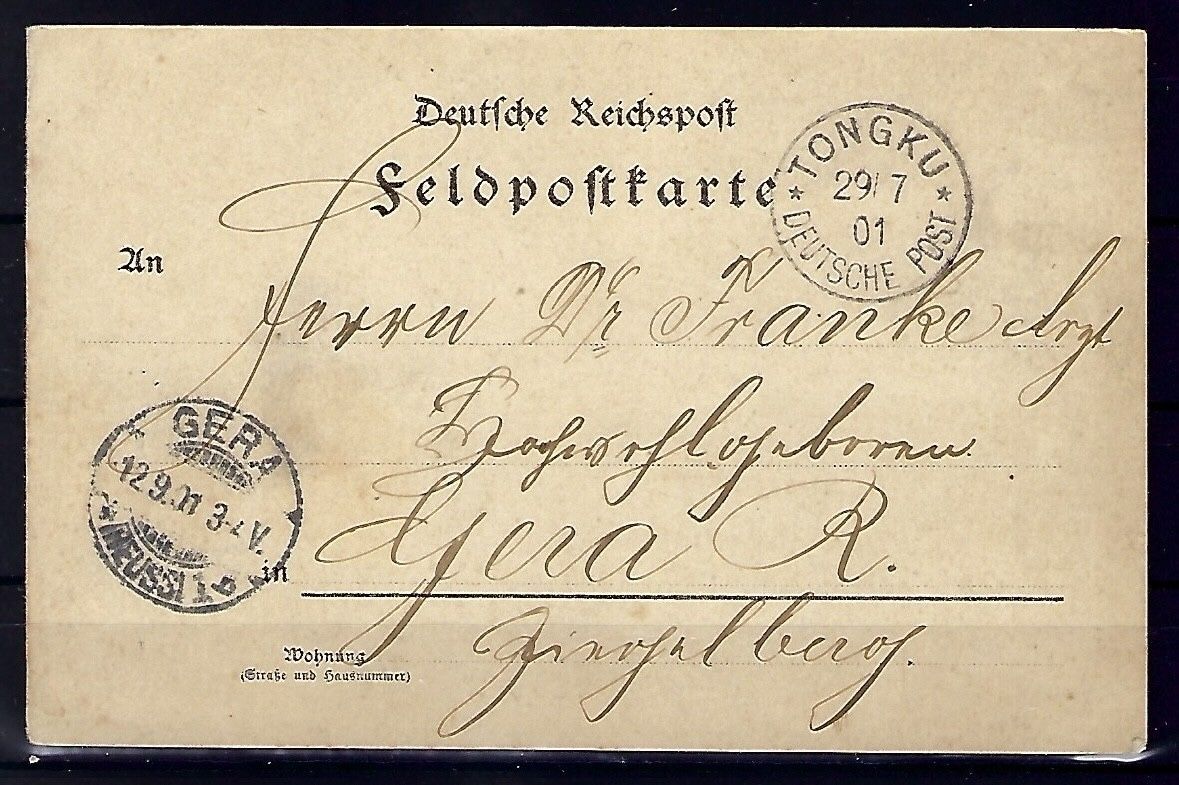 Deutsche Reichspost
Feldpostkarte
TONGKU
29/7
01
DEUTSCHE POST
An
Herrn Dr Franke Arzt
Hochwohlgeboren
GERA
12.9.01 3-4 V.
(REUSS) 1 b
in Gera R.
Ziegelberg.
Wohnung
(Straße und Hausnummer)